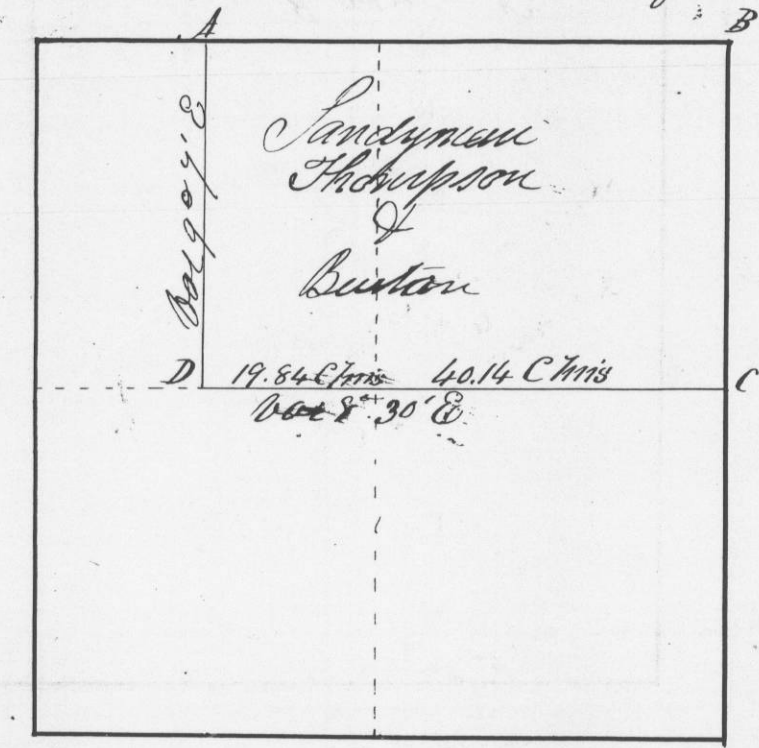 A
B
Sandyman
Thompson
&
Burton
D 19.84 Chns 40.14 Chns C
Var 8° 30' E
Var 9° E